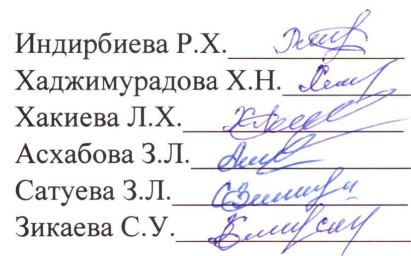 Индирбиева Р.Х.
Хаджимурадова Х.Н.
Хакиева Л.Х.
Асхабова З.Л.
Сатуева З.Л.
Зикаева С.У.